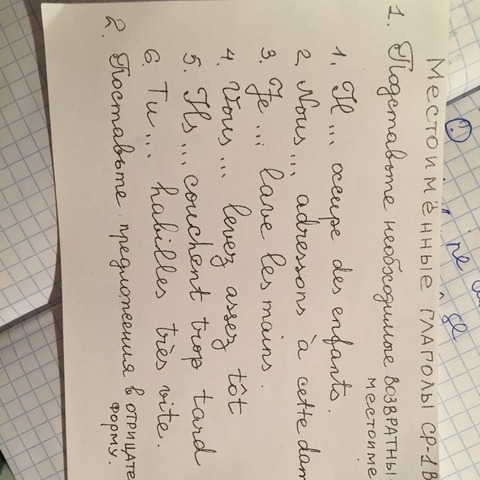 Местоимённые глаголы ср-1В
1. Подставьте необходимые возвратны
местоиме
1. Il ... occupe des enfants.
2. Nous ... adressons à cette dam
3. Je ... lave les mains.
4. Vous ... levez assez tôt
5. Ils ... couchent trop tard
6. Tu ... habilles très vite.
2. Поставьте предложения в отрицате
форму.